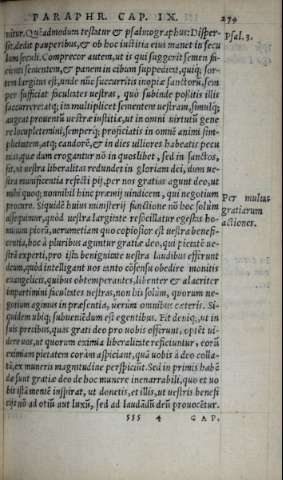 PARAPHR. CAP. IX. 279
nitur. Quẽadmodum testatur & psalmographus: Disper-
sit, dedit pauperibus, & ob hoc iustitia eius manet in secu
lum seculi. Comprecor autem, ut is qui suggerit semen fa-
cienti sementem, & panem in cibum suppeditet, quiq; sor-
tem largitus est, unde nũc succurritis inopiæ sanctorũ, sem
per sufficiat facultates uestras, quo subinde possitis illis
succurrere: atq; in multiplicet sementem uestram, simulq;
augeat prouentũ uestræ iustitiæ, ut in omni uirtutũ gene
re locupletemini, semperq; proficiatis in omnẽ animi sim-
plicitatem, atq; candorẽ, & in dies uiliores habeatis pecu
nias, quæ dum erogantur nõ in quoslibet, sed in sanctos,
fit, ut uestra liberalitas redundet in gloriam dei, dum ue-
stra munificentia refecti ipsi, per nos gratias agunt deo, ut
mihi quoq; nonnihil hinc præmij uindicem, qui negotium
procuro. Siquidẽ huius ministerij functione nõ hoc solùm
assequimur, quòd uestra largitate refocillatur egestas ho-
minum piorũ, uerumetiam quo copiosior est uestra benefi-
centia, hoc à pluribus aguntur gratiæ deo, qui pietatẽ ue-
strã experti, pro istis benigniate uestra laudibus efferunt
deum, quòd intelligant nos tanto cõsensu obedire monitis
euangelicis, quibus obtemperantes, libenter & alacriter
impartimini facultates uestras, non bis solùm, quorum ne-
gotium agimus in præsentia, uerùm omnibus ceteris. Si-
quidem ubiq; subueniẽdum est egentibus. Fit deniq;, ut in
suis precibus, quas grati deo pro uobis offerunt, optẽt ui-
dere uos, ut quorum eximia liberalitate reficiuntur, eorũ
eximiam pietatem coràm aspiciant, quã uobis à deo colla-
tã, ex muneris magnitudine perspiciũt. Sed in primis habẽ
dæ sunt gratiæ deo de hoc munere inenarrabili, quo et uo
bis istã mentẽ inspirat, ut donetis, et illis, ut uestris benefi
cijs nõ ad otiũ aut luxũ, sed ad laudãdũ deũ prouocẽtur.
sss 4 CAP.
Psal. 3.
Per multas
gratiarum
actiones.